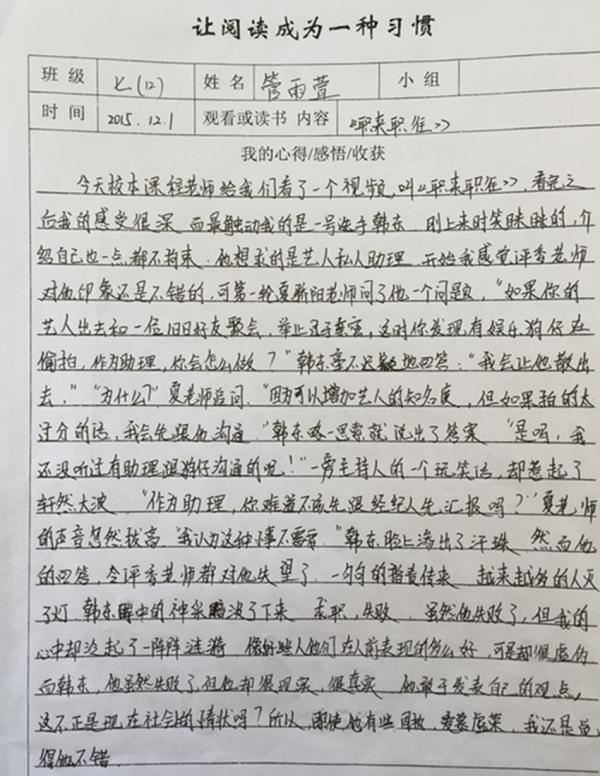 让阅读成为一种习惯
班级 七(12) 姓名 管雨萱 小组
时间 2015.12.1 观看或读书 内容 《职来职往》
我的心得/感悟/收获
今天校本课程老师给我们看了一个视频,叫《职来职往》,看完之
后我的感受很深 而最触动我的是一号选手韩东 刚上来时笑眯眯的,介
绍自己也一点都不拘束.他想求的是艺人私人助理 开始我感觉评委老师
对他印象还是不错的,可第一轮夏骄阳老师问了他一个问题,“如果你的
艺人出去和一位旧日好友聚会,举止,这时你发现有娱乐狗仔在
偷拍,作为助理,你会怎么做?”韩东毫不迟疑地回答:“我会让他散出
去.”“为什么?”夏老师追问.“因为可以增加艺人的知名度,但如果拍的太
过分的话,我会先跟他沟通.”韩东略一思索就说出了答案 “是吗,我
还没听过有助理跟狗仔沟通的呢!”一旁主持人的一个玩笑话,却惹起了
轩然大波 “作为助理,你难道不该先跟经纪人先汇报吗?”夏老师
的声音忽然拔高 “我认为这种事不需要.”韩东脸上渗出了汗珠 然而他
的回答,令评委老师都对他失望了.一句句的指责传来 越来越多的人灭
了灯 韩东眼中的神采暗淡了下来 求职,失败.虽然他失败了,但我的
心中却泛起了一阵阵涟漪 像好些人他们在人前表现的多么好,可是却很虚伪
而韩东,他虽然失败了但他却很现实,很真实 他敢于发表自己的观点,
这不正是现在社会的情状吗?所以,即使他有些,爱慕虚荣,我还是觉
得他不错.